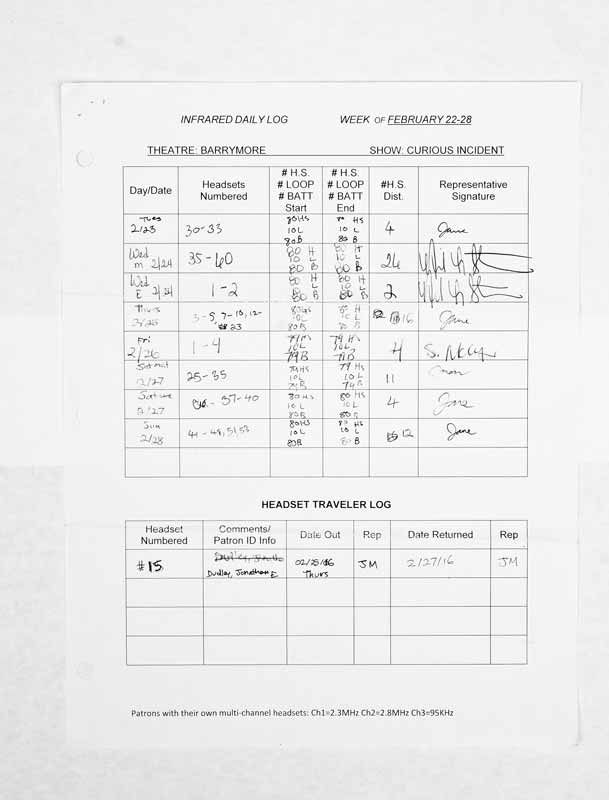 INFRARED DAILY LOG WEEK OF FEBRUARY 22-28
THEATRE: BARRYMORE SHOW: CURIOUS INCIDENT
Day/Date Headsets Numbered # H.S. # LOOP # BATT Start # H.S. # LOOP # BATT End #H.S. Dist. Representative Signature
Tues 2/23 30-33 80HS 10L 80B 80 HS 10 L 80 B 4 Jane
Wed m 2/24 35-60 80 H 10 L 80 B 80 H 10 L 80 B 26
Wed E 2/24 1-2 80 H 10 L 80 B 80 H 10 L 80 B 2
Thurs 2/25 3-5, 7-10, 12- 23 80HS 10L 80B 80 H 10 L 80 B 16 Jane
Fri 2/26 1-4 79HS 10L 79B 79 HS 10L 79B 4 S.
Sat mat 2/27 25-35 79HS 10L 79B 79 HS 10 L 79 B 11
Sat eve 2/27 37-40 80HS 10L 80B 80 HS 10 L 80 B 4 Jane
Sun 2/28 41-48, 51,53 80HS 10L 80B 80 HS 10 L 80 B 12 Jane
HEADSET TRAVELER LOG
Headset Numbered Comments/ Patron ID Info Date Out Rep Date Returned Rep
#15 Dudley, Jonathan E 02/25/16 Thurs JM 2/27/16 JM
Patrons with their own multi-channel headsets: Ch1=2.3MHz Ch2=2.8MHz Ch3=95KHz